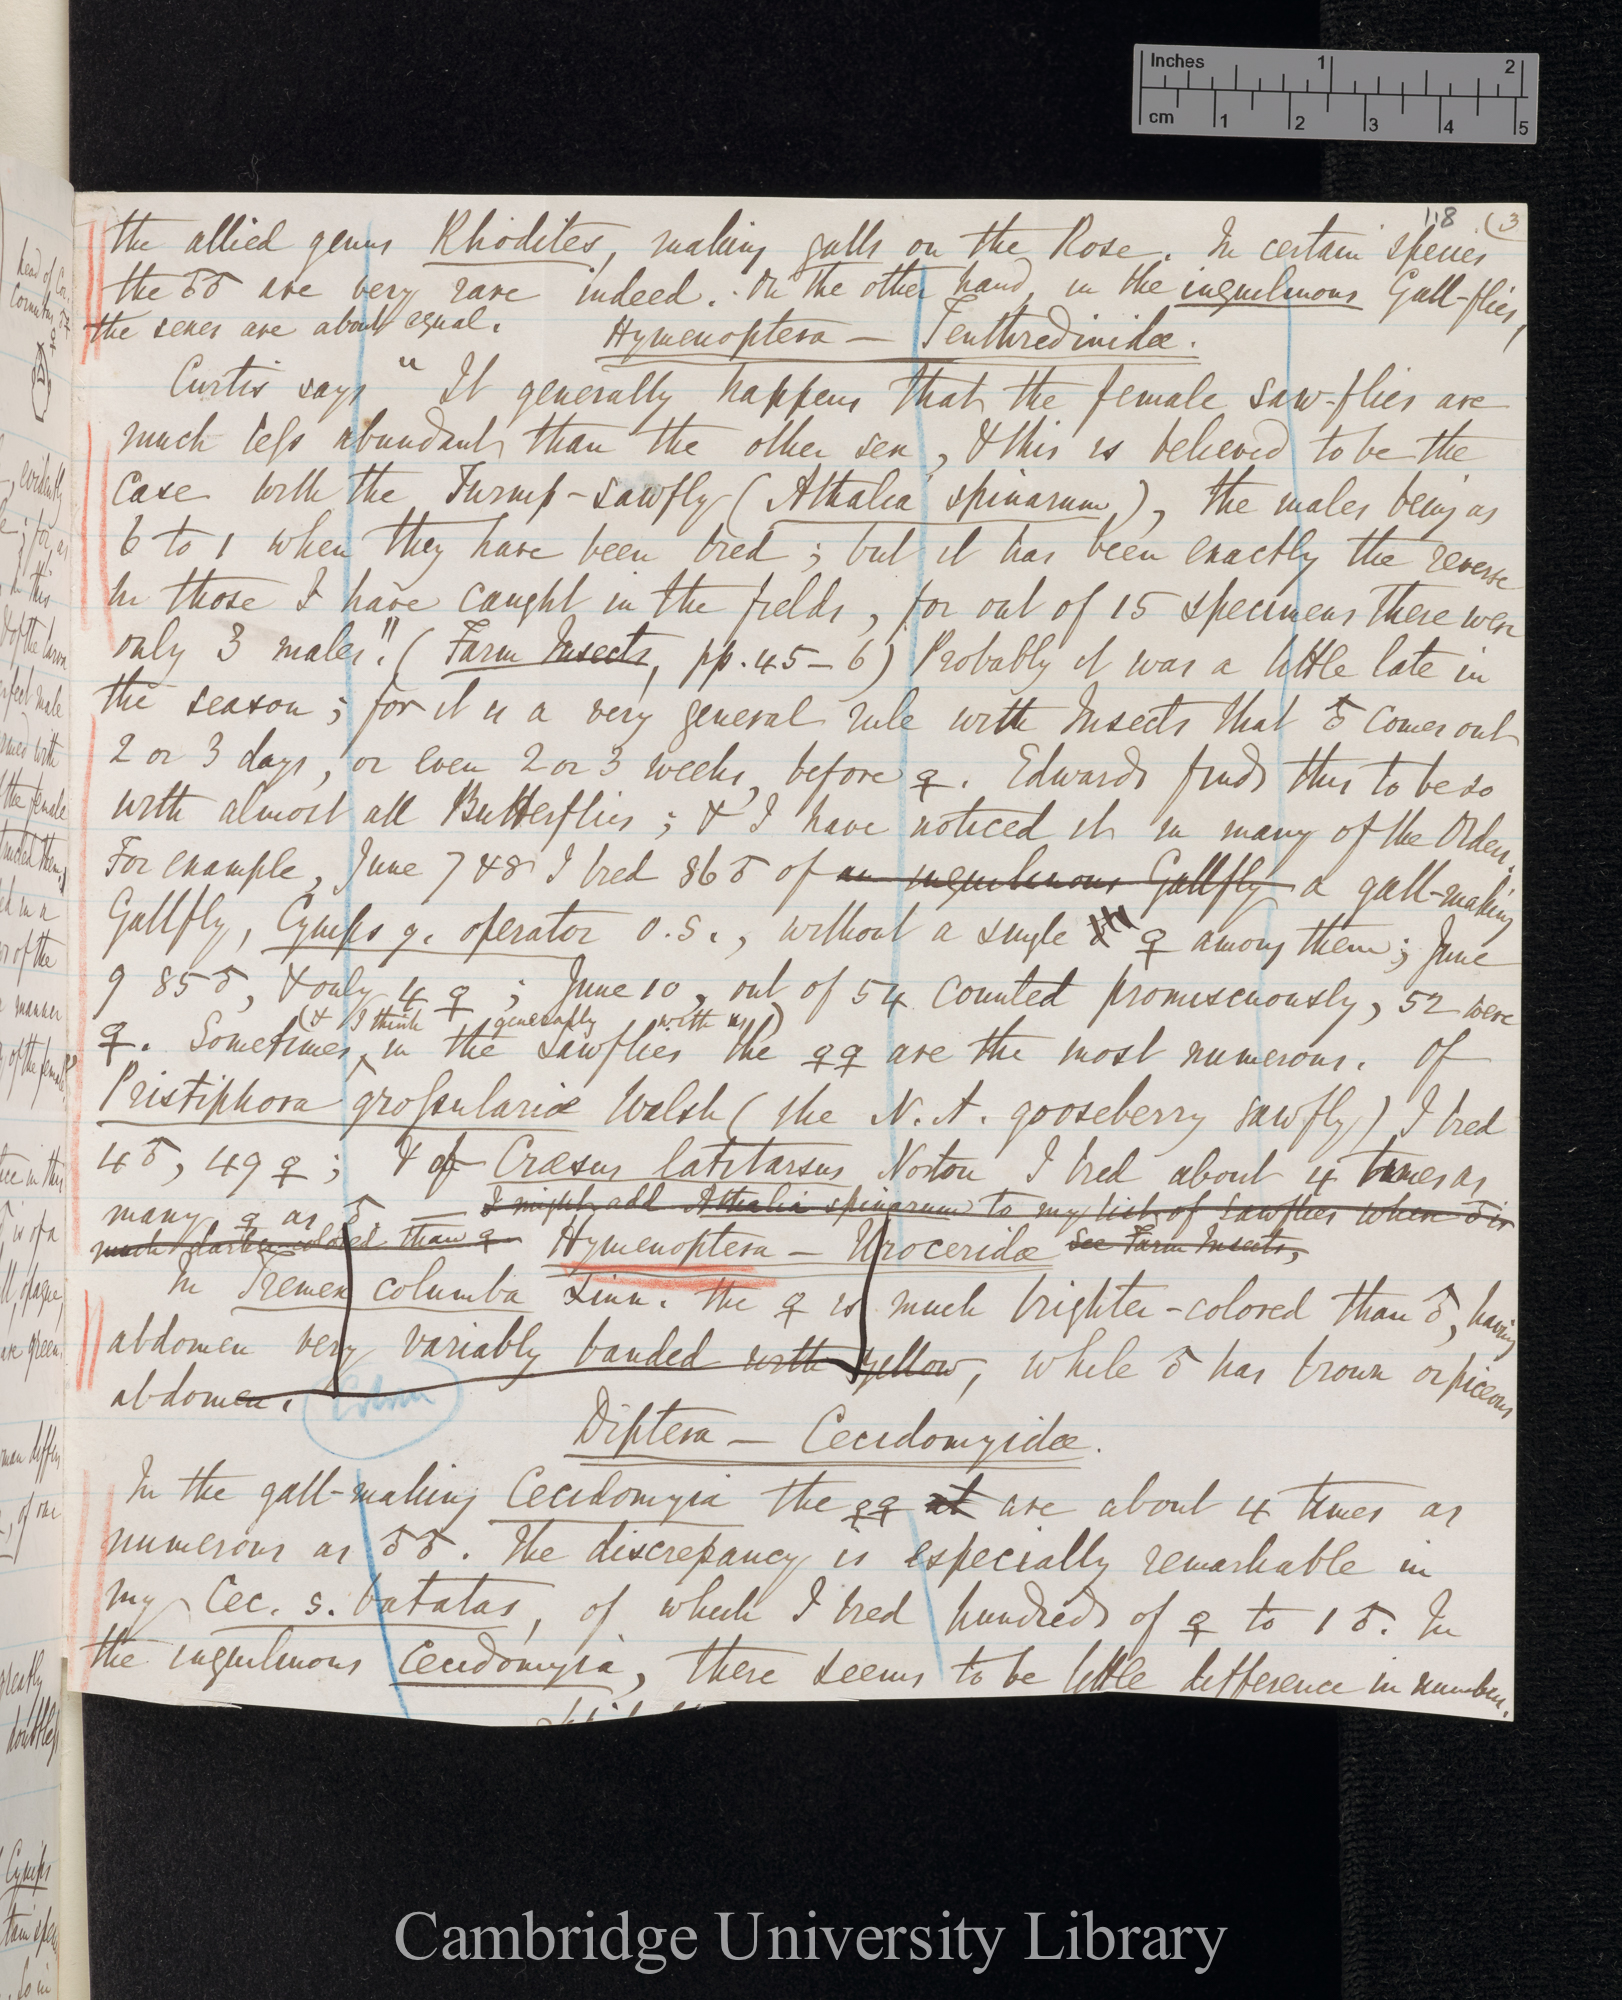 Inches 1 2
cm 1 2 3 4 5
118 (3
the allied genus Rhodites, making galls on the Rose. In certain species
the ♂♂ are very rare indeed. On the other hand, in the inquilinous Gall-flies,
the sexes are about equal.
Hymenoptera — Tenthredinidæ.
Curtis says "It generally happens that the female saw-flies are
much less abundant than the other sex, & this is believed to be the
case with the Turnip-sawfly (Athalia spinarum), the males being as
6 to 1 when they have been bred; but it has been exactly the reverse
in those I have caught in the fields, for out of 15 specimens there were
only 3 males". (Farm Insects, pp. 45–6) Probably it was a little late in
the season; for it is a very general rule with Insects that ♂ comes out
2 or 3 days, or even 2 or 3 weeks, before ♀. Edwards finds this to be so
with almost all Butterflies; & I have noticed it in many of the Orders.
For example, June 7 & 8 I bred 86 ♂ of an inquilinous Gallfly a gall-making
Gallfly, Cynips q. operator O.S., without a single ♀ among them; June
9 85 ♂, & only 4 ♀; June 10, out of 54 counted promiscuously, 52 were
(& I think generally with us)
♀. Sometimes in the sawflies the ♀♀ are the most numerous. Of
Pristiphora grossulariæ Walsh (the N. A. gooseberry sawfly) I bred
4 ♂, 49 ♀; & of Cræsus latitarsus Norton I bred about 4 times as
many ♀ as ♂ — I might add Athalia spinarum to my list of Sawflies where ♂ is
much darker colored than ♀ Hymenoptera — Uroceridæ See Farm Insects,
In Tremex columba Linn. the ♀ is much brighter-colored than ♂, having
abdomen very variably banded with yellow, while ♂ has brown or piceous
abdomen.
Diptera — Cecidomyidæ.
In the gall-making Cecidomyia the ♀♀ are about 4 times as
numerous as ♂♂. The discrepancy is especially remarkable in
my Cec. s. batatas, of which I bred hundreds of ♀ to 1 ♂. In
the inquilinous Cecidomyia, there seems to be little difference in number.
Cambridge University Library